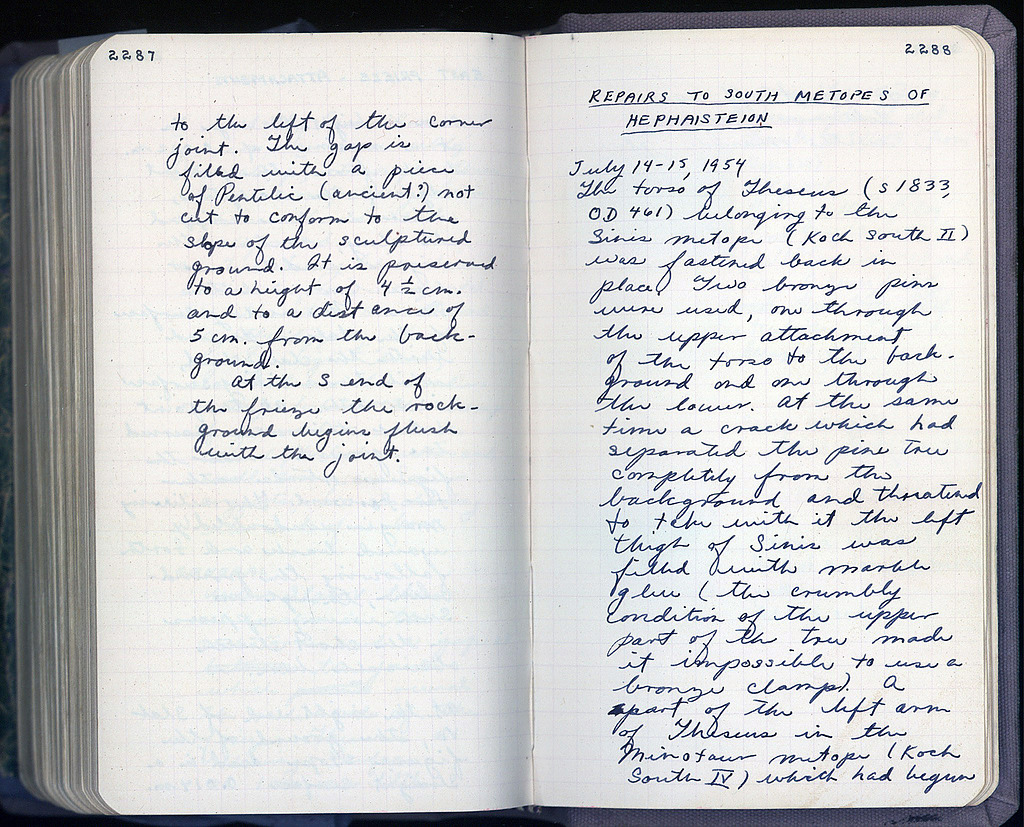 2287
to the left of the corner
joint. The gap is
filled with a piece
of Pentelic (ancient?) not
cut to conform to the
slope of the sculptured
ground. It is preserved
to a height of 4 ½ cm.
and to a distance of
5 cm. from the back-
ground.
At the S end of
the frieze the rock-
ground begins flush
with the joint.
2288
REPAIRS TO SOUTH METOPES OF
HEPHAISTEION
July 14-15, 1954
The torso of Theseus (S 1833,
OD 461) belonging to the
Sinis metope (Koch South II)
was fastened back in
place. Two bronze pins
were used, one through
the upper attachment
of the torso to the back-
ground and one through
the lower. At the same
time a crack which had
separated the pine tree
completely from the
background and threatened
to take with it the left
thigh of Sinis was
filled with marble
glue (the crumbly
condition of the upper
part of the tree made
it impossible to use a
bronze clamp). A
part of the left arm
of Theseus in the
Minotaur metope (Koch
South IV) which had begun